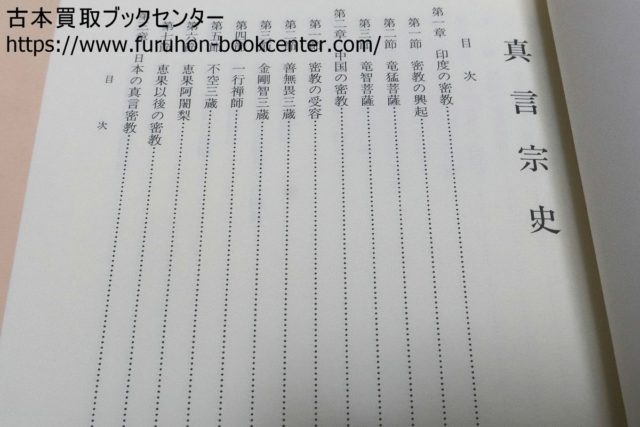 古本買取ブックセンター
https://www.furuhon-bookcenter.com/
真言宗史
目次
第一章 印度の密教
第一節 密教の興起
第二節 竜猛菩薩
第三節 竜智菩薩
第二章 中国の密教
第一節 密教の受容
第二節 善無畏三蔵
第三節 金剛智三蔵
第四節 一行禅師
第五節 不空三蔵
第六節 恵果阿闍梨
第七節 恵果以後の密教
第三章 日本の真言密教
目次